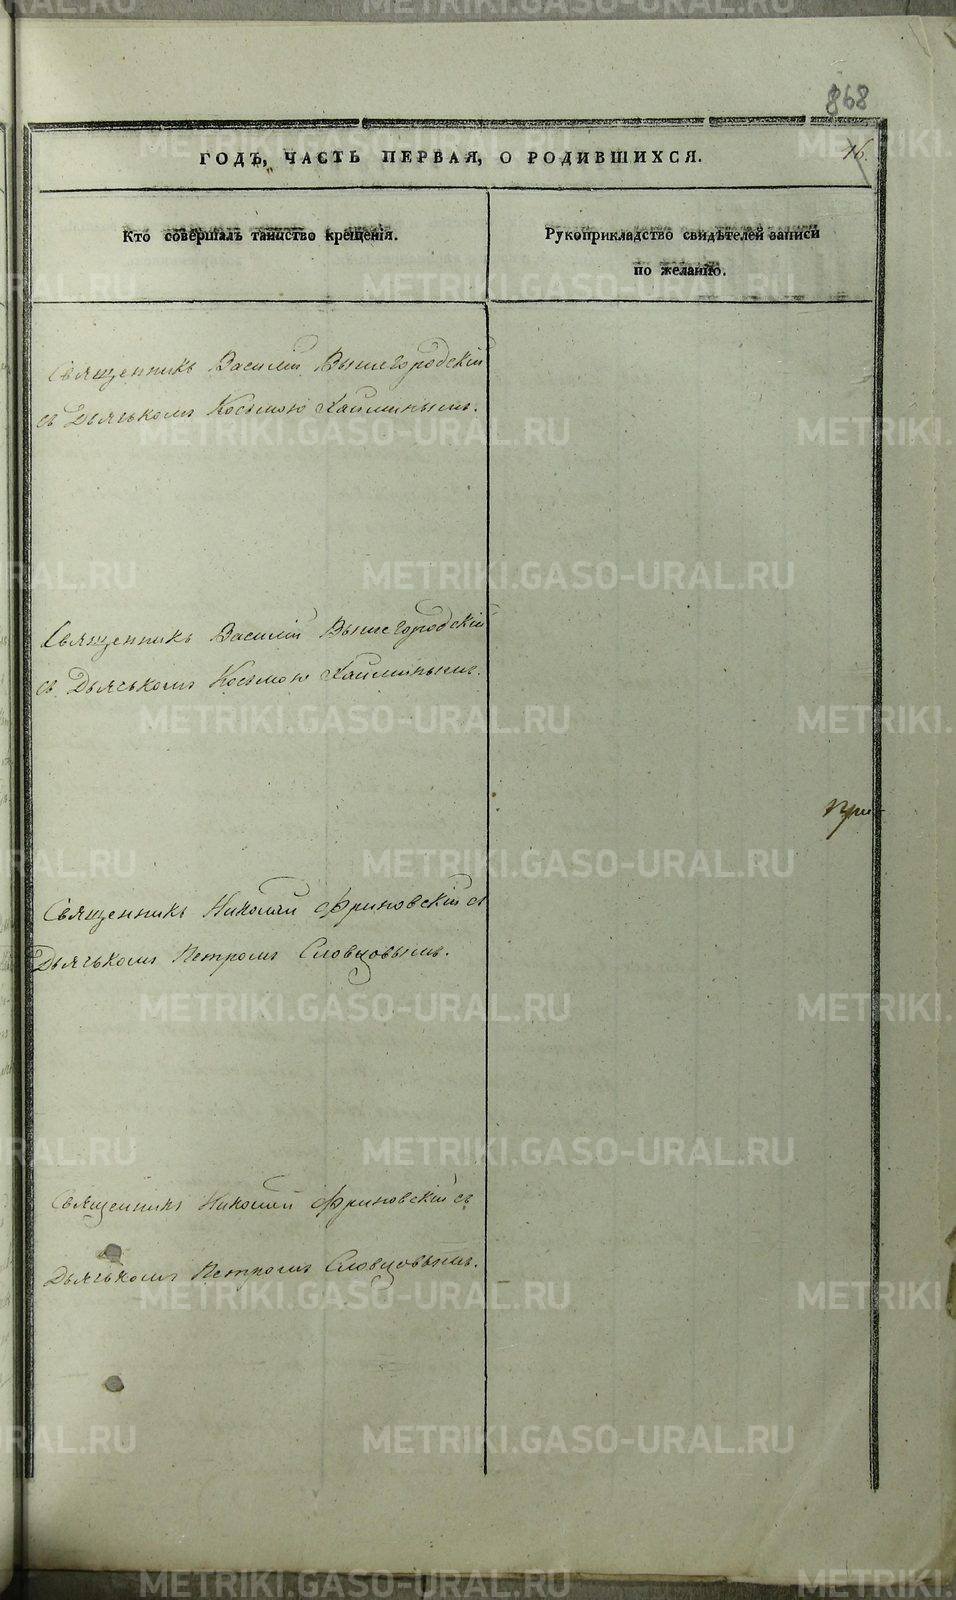 868
16.
ГОДЪ, ЧАСТЬ ПЕРВАЯ, О РОДИВШИХСЯ.
Кто совершалъ таинство крещенія.
Рукоприкладство свидѣтелей записи
по желанію.
Священникъ Василій Вышегородскій
съ Дьячькомъ Косьмою Хайминымъ.
Священникъ Василій Вышегородскій
съ Дьячькомъ Косьмою Хайминымъ.
при-
Священникъ Николай Фриновскій съ
Дьячькомъ Петромъ Словцовымъ.
Священникъ Николай Фриновскій съ
Дьячькомъ Петромъ Словцовымъ.
METRIKI.GASO-URAL.RU